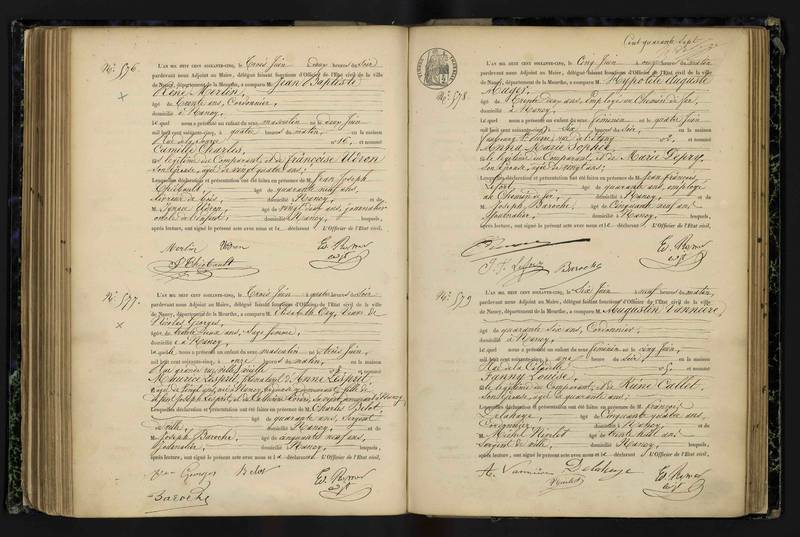 No. 576
L'AN MIL HUIT CENT SOIXANTE-CINQ, le Trois Juin deux heures du Soir
pardevant nous Adjoint au Maire, délégué faisant fonctions d'Officier de l'État civil de la ville
de Nancy, département de la Meurthe, a comparu M. Jean Baptiste
René Merlin,
âgé de trente ans, Cordonnier,
domicilié à Nancy,
lequel nous a présenté un enfant du sexe masculin né deux Juin
mil huit cent soixante-cinq, à quatre heures du matin, en la maison
No 16, et nommé
Camille Charles,
fils légitime du Comparant, et de Françoise Udron
Son épouse, âgée de vingt quatre ans;
Lesquelles déclaration et présentation ont été faites en présence de M. Jean Joseph
Thiébault, âgé de quarante neuf ans,
domicilié à Nancy, et de
M. Ignace Udron, âgé de vingt neuf ans, journalier
domicilié à Nancy, lesquels,
après lecture, ont signé le présent acte avec nous et le déclarant. L'Officier de l'État civil,
Merlin Udron Ed. Rymer
J. Thiébault adjt
No. 577.
L'AN MIL HUIT CENT SOIXANTE-CINQ, le Trois Juin quatre heures du Soir
pardevant nous Adjoint au Maire, délégué faisant fonctions d'Officier de l'État civil de la ville
de Nancy, département de la Meurthe, a comparu M. Elisabeth Veuve de
Nicolas Georges,
âgée de ans, Sage femme,
domiciliée à Nancy,
laquelle nous a présenté un enfant du sexe masculin né Trois Juin,
mil huit cent soixante-cinq, à onze heures du matin, en la maison
Rue grande rue, ville vieille No et nommé
Maurice Lesprit, fils naturel de Anne Lesprit
Lesquelles déclaration et présentation ont été faites en présence de M. Charles Belot,
âgé de quarante ans, Sergent
de ville, domicilié à Nancy, et de
M. Joseph Baroche, âgé de cinquante neuf ans,
Journalier, domicilié à Nancy, lesquels,
après lecture, ont signé le présent acte avec nous et la déclarant. L'Officier de l'État civil,
Georges Belot Ed. Rymer
Baroche adjt
Cent quarante Sept
No. 578.
L'AN MIL HUIT CENT SOIXANTE-CINQ, le Cinq Juin onze heures du matin
pardevant nous Adjoint au Maire, délégué faisant fonctions d'Officier de l'État civil de la ville
de Nancy, département de la Meurthe, a comparu M. Hyppolite Auguste
âgé de trente deux ans, Employé au Chemin de fer,
domicilié à Nancy,
lequel nous a présenté un enfant du sexe féminin né quatre Juin
mil huit cent soixante-cinq, à Six heures du Soir, en la maison
No 2, et nommé
Anna Marie Sophie
fille légitime du Comparant, et de Marie
Son épouse, âgée de vingt ans;
Lesquelles déclaration et présentation ont été faites en présence de M. Jean François
âgé de quarante ans, employé
au Chemin de fer, domicilié à Nancy, et de
M. Joseph Baroche, âgé de Cinquante neuf ans
Journalier, domicilié à Nancy, lesquels,
après lecture, ont signé le présent acte avec nous et le déclarant. L'Officier de l'État civil,
Ed. Rymer
Baroche adjt
No. 579
L'AN MIL HUIT CENT SOIXANTE-CINQ, le Six Juin neuf heures du matin,
pardevant nous Adjoint au Maire, délégué faisant fonctions d'Officier de l'État civil de la ville
de Nancy, département de la Meurthe, a comparu M. Augustin Vannière
âgé de quarante Six ans, Cordonnier,
domicilié à Nancy,
lequel nous a présenté un enfant du sexe féminin né cinq Juin,
mil huit cent soixante-cinq, à une heure du Soir, en la maison
Rue de la Citadelle No 5, et nommé
Fanny Louise,
fille légitime du Comparant, et de Reine Callet,
Son épouse, âgée de quarante ans;
Lesquelles déclaration et présentation ont été faites en présence de M. François
Delahaye, âgé de Cinquante quatre ans,
Cordonnier, domicilié à Nancy, et de
M. Michel âgé de trente huit ans
Sergent de ville, domicilié à Nancy, lesquels,
après lecture, ont signé le présent acte avec nous et le déclarant. L'Officier de l'État civil,
A. Vannière Delahaye Ed. Rymer
adjt